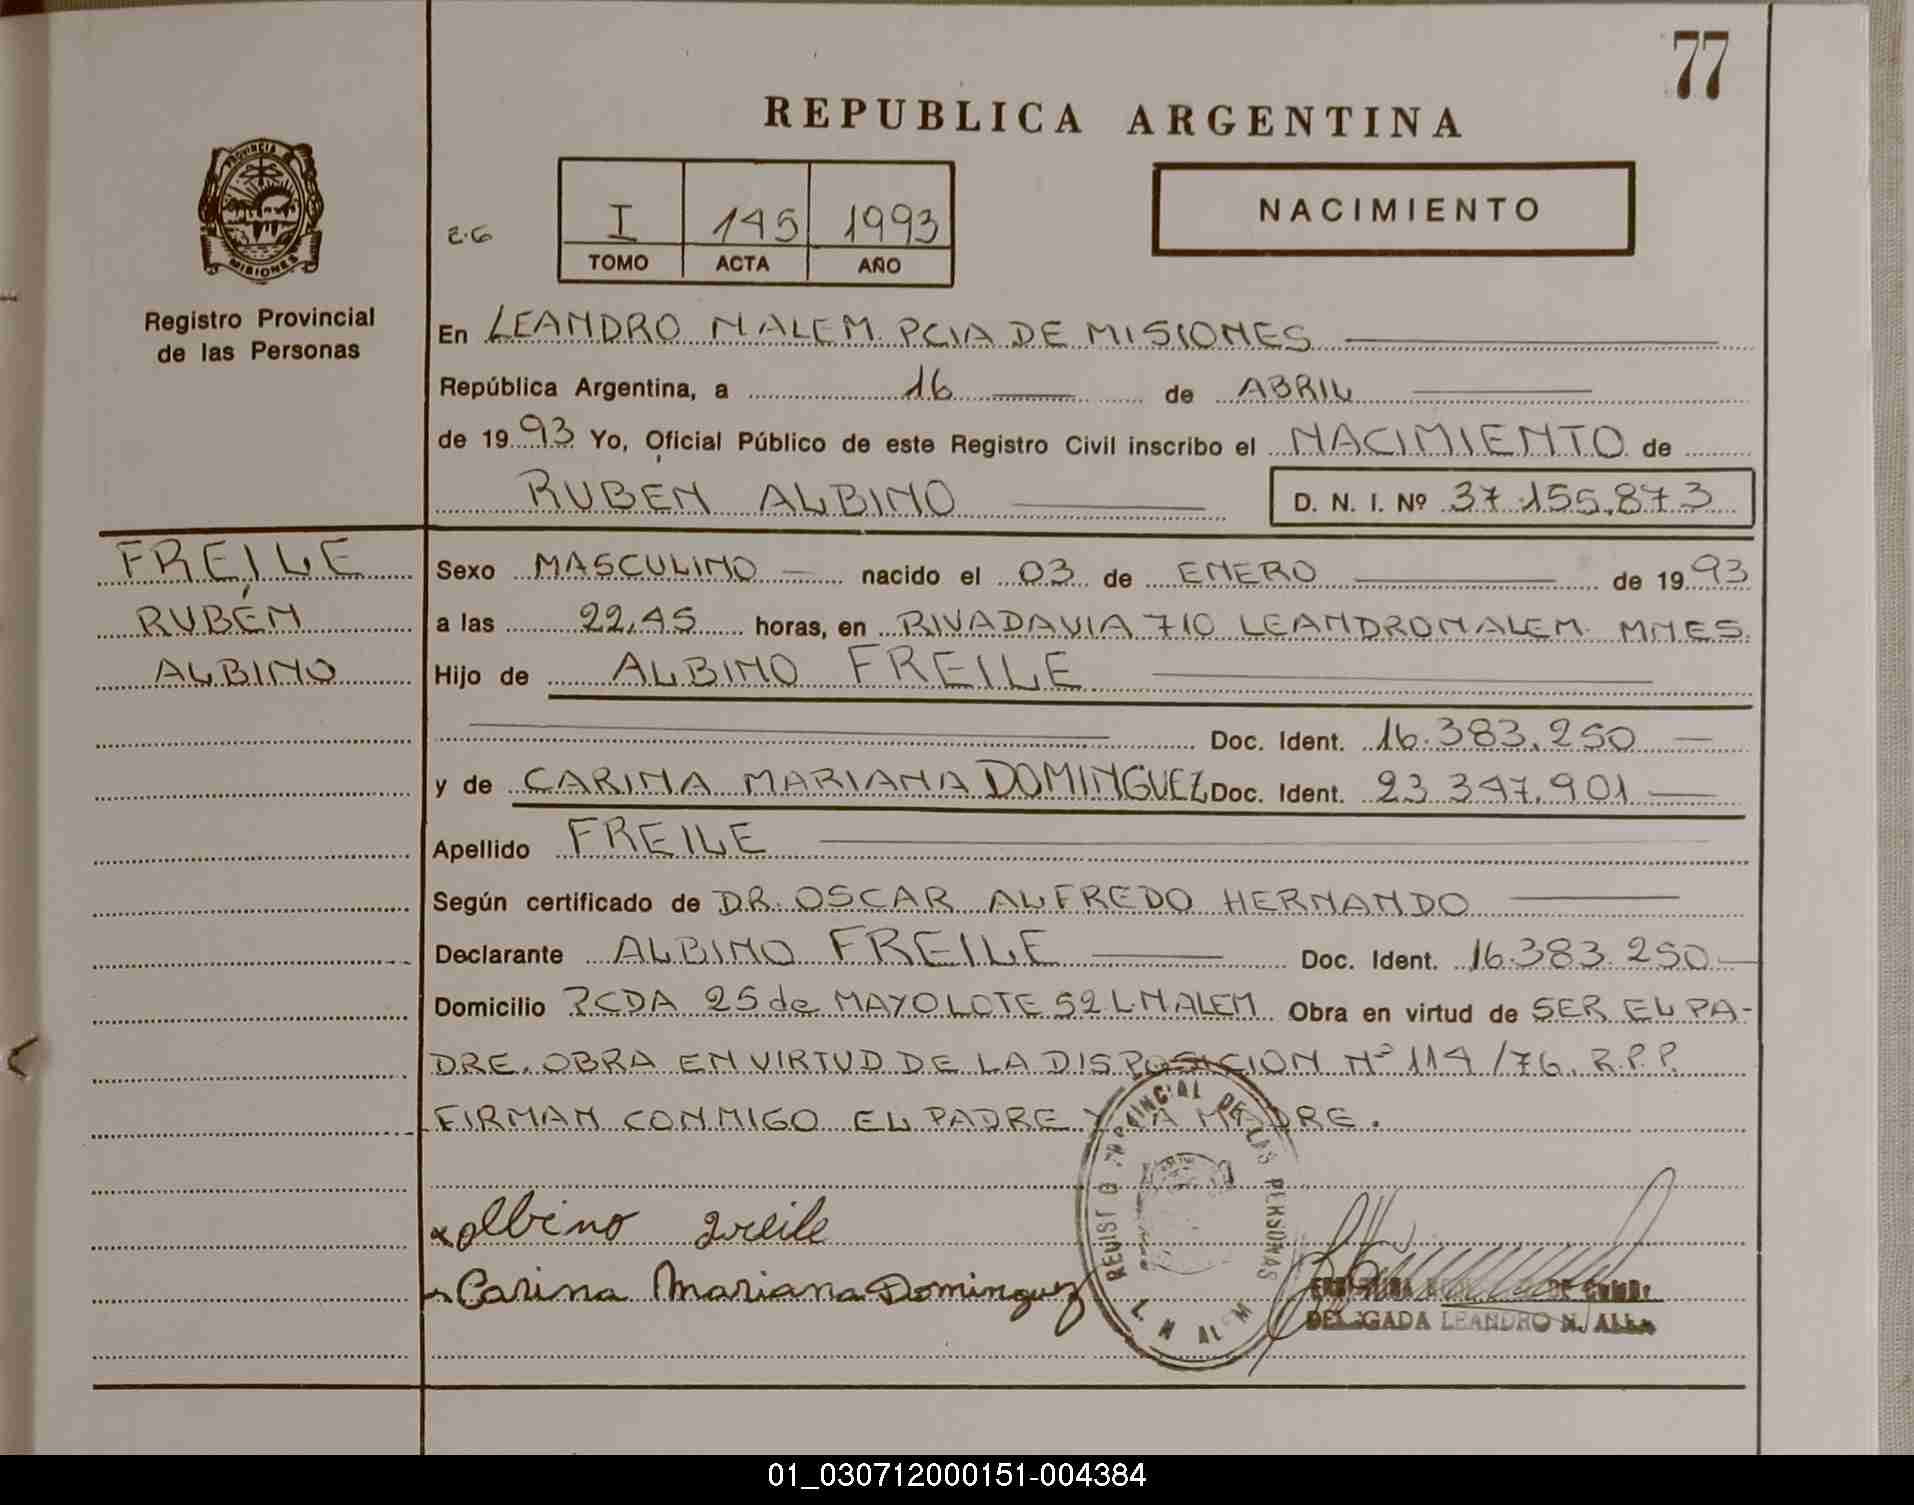 77
REPUBLICA ARGENTINA
PROVINCIA
MISIONES
Registro Provincial
de las Personas
I 145 1993
TOMO ACTA AÑO
NACIMIENTO
En LEANDRO N ALEM PCIA DE MISIONES
República Argentina, a 16 de ABRIL
de 1993 Yo, Oficial Público de este Registro Civil inscribo el NACIMIENTO de
RUBEN ALBINO D. N. I. Nº 37.155.873
FREILE
RUBÉN
ALBINO
Sexo MASCULINO nacido el 03 de ENERO de 1993
a las 22,45 horas, en RIVADAVIA 710 LEANDRO N ALEM. MNES.
Hijo de ALBINO FREILE
Doc. Ident. 16.383.250
y de CARINA MARIANA DOMINGUEZ Doc. Ident. 23.347.901
Apellido FREILE
Según certificado de DR. OSCAR ALFREDO HERNANDO
Declarante ALBINO FREILE Doc. Ident. 16.383.250
Domicilio PCDA 25 de MAYO LOTE 52 L. N ALEM Obra en virtud de SER EL PA-
DRE. OBRA EN VIRTUD DE LA DISPOSICION Nº 114/76. R.P.P.
FIRMAN CONMIGO EL PADRE Y LA MADRE.
Albino Freile
Carina Mariana Dominguez
PROVINCIAL DE LAS PERSONAS
L. N. ALEM
DELEGADA LEANDRO N. ALEM
01_030712000151-004384